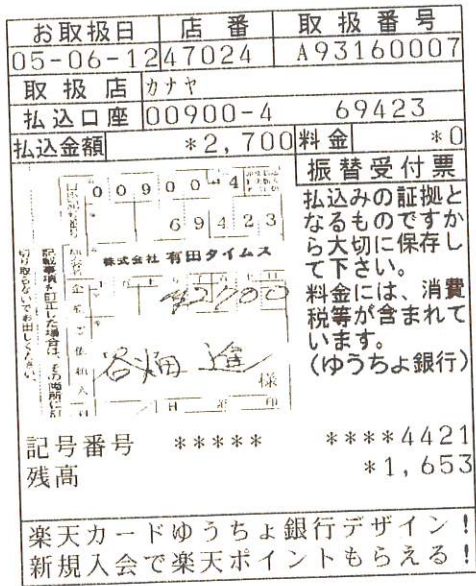 お取扱日 店番 取扱番号
05-06-12 47024 A93160007
取扱店 カナヤ
払込口座 00900-4 69423
払込金額 *2,700 料金 *0
振替受付票
払込みの証拠と
なるものですか
ら大切に保存し
て下さい。
料金には、消費
税等が含まれて
います。
(ゆうちょ銀行)
00900-4
69423
株式会社 有田タイムス
¥2700
谷畑 進
様
記載事項を訂正した場合は、その箇所に
切り取らないでお出しください。
記号番号 ***** ****4421
残高 *1,653
楽天カードゆうちょ銀行デザイン!
新規入会で楽天ポイントもらえる!